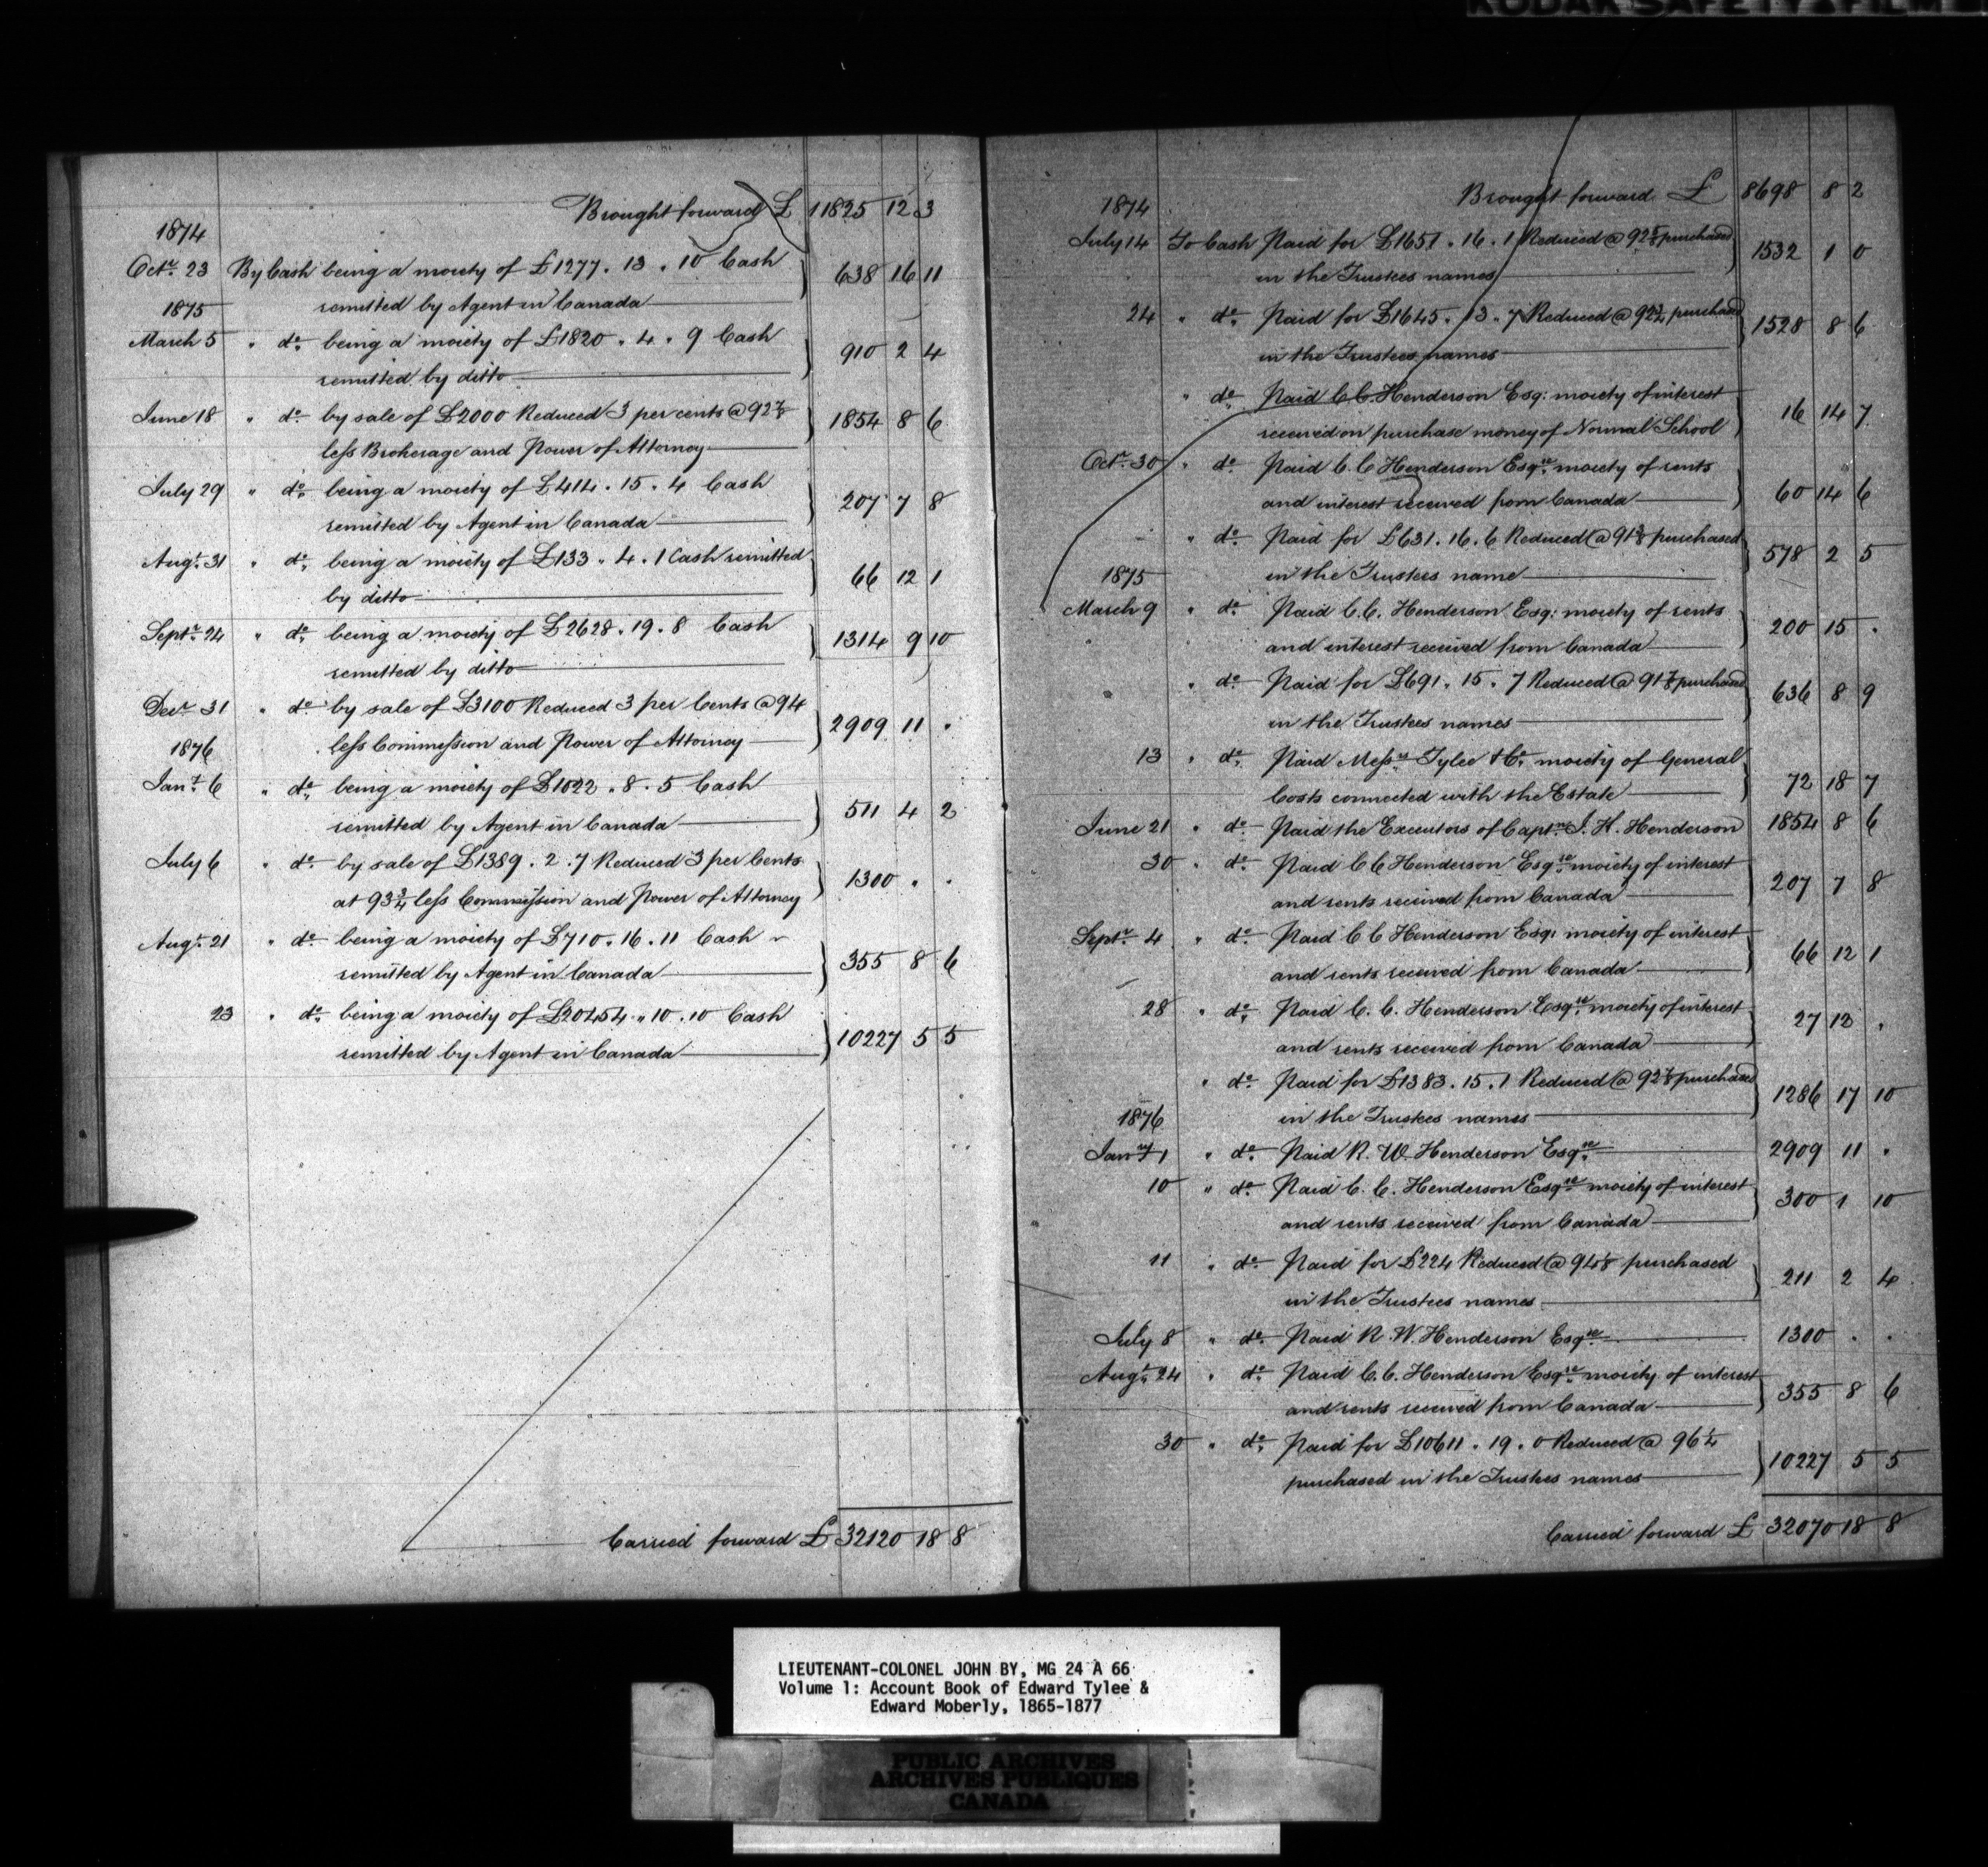 KODAK SAFETY FILM
Brought forward £ 11825 12 3
1874
Octr. 23 By Cash being a moiety of £1277 . 13 . 10 Cash
remitted by Agent in Canada 638 16 11
1875
March 5 " do. being a moiety of £1820 . 4 . 9 Cash
remitted by ditto 910 2 4
June 18 " do. by sale of £2000 Reduced 3 per cents @ 92 7/8
less Brokerage and Power of Attorney 1854 8 6
July 29 " do. being a moiety of £414 . 15 . 4 Cash
remitted by Agent in Canada 207 7 8
Augt. 31 " do. being a moiety of £133 . 4 . 1 Cash remitted
by ditto 66 12 1
Septr. 24 " do. being a moiety of £2628 . 19 . 8 Cash
remitted by ditto 1314 9 10
Decr 31 " do. by sale of £3100 Reduced 3 per Cents @ 94
less Commission and Power of Attorney 2909 11 "
1876
Jany. 6 " do. being a moiety of £1022 . 8 . 5 Cash
remitted by Agent in Canada 511 4 2
July 6 " do. by sale of £1389 . 2 . 7 Reduced 3 per Cents
at 93 3/4 less Commission and Power of Attorney 1300 " "
Augt. 21 " do. being a moiety of £710 . 16 . 11 Cash
remitted by Agent in Canada 355 8 6
23 " do. being a moiety of £20454 . 10 . 10 Cash
remitted by Agent in Canada 10227 5 5
Carried forward £ 32120 18 8
Brought forward £ 8698 8 2
1874
July 14 To Cash Paid for £1651 . 16 . 1 Reduced @ 92 5/8 purchased
in the Trustees names 1532 1 0
24 " do. Paid for £1645 . 13 . 7 Reduced @ 92 3/4 purchased
in the Trustees names 1528 8 6
" do. Paid C. C. Henderson Esq: moiety of interest
received on purchase money of Normal School 16 14 7
Octr. 30 " do. Paid C. C Henderson Esqre. moiety of rents
and interest received from Canada 60 14 6
" do. Paid for £631 . 16 . 6 Reduced @ 91 3/8 purchased
in the Trustees name 578 2 5
1875
March 9 " do. Paid C. C. Henderson Esq: moiety of rents
and interest received from Canada 200 15 "
" do. Paid for £691 . 15 . 7 Reduced @ 91 7/8 purchased
in the Trustees names 636 8 9
13 " do. Paid Messrs Tylee & Co. moiety of General
Costs connected with the Estate 72 18 7
June 21 " do. Paid the Executors of Captn. J. H. Henderson 1854 8 6
30 " do. Paid C C Henderson Esqre. moiety of interest
and rents received from Canada 207 7 8
Septr. 4 " do. Paid C C Henderson Esq: moiety of interest
and rents received from Canada 66 12 1
28 " do. Paid C. C. Henderson Esqre. moiety of interest
and rents received from Canada 27 12 "
" do. Paid for £1383 . 15 . 1 Reduced @ 92 7/8 purchased
in the Trustees names 1286 17 10
1876
Jany 1 " do. Paid R. W. Henderson Esqre. 2909 11 "
10 " do. Paid C. C. Henderson Esqre. moiety of interest
and rents received from Canada 300 1 10
11 " do. Paid for £224 Reduced @ 94 1/8 purchased
in the Trustees names 211 2 4
July 8 " do. Paid R. W. Henderson Esqre. 1300 " "
Augt. 24 " do. Paid C. C. Henderson Esqre. moiety of interest
and rents received from Canada 355 8 6
30 " do. Paid for £10611 . 19 . 0 Reduced @ 96 1/4
purchased in the Trustees names 10227 5 5
Carried forward £ 32070 18 8
LIEUTENANT-COLONEL JOHN BY, MG 24 A 66
Volume 1: Account Book of Edward Tylee &
Edward Moberly, 1865-1877
PUBLIC ARCHIVES
ARCHIVES PUBLIQUES
CANADA